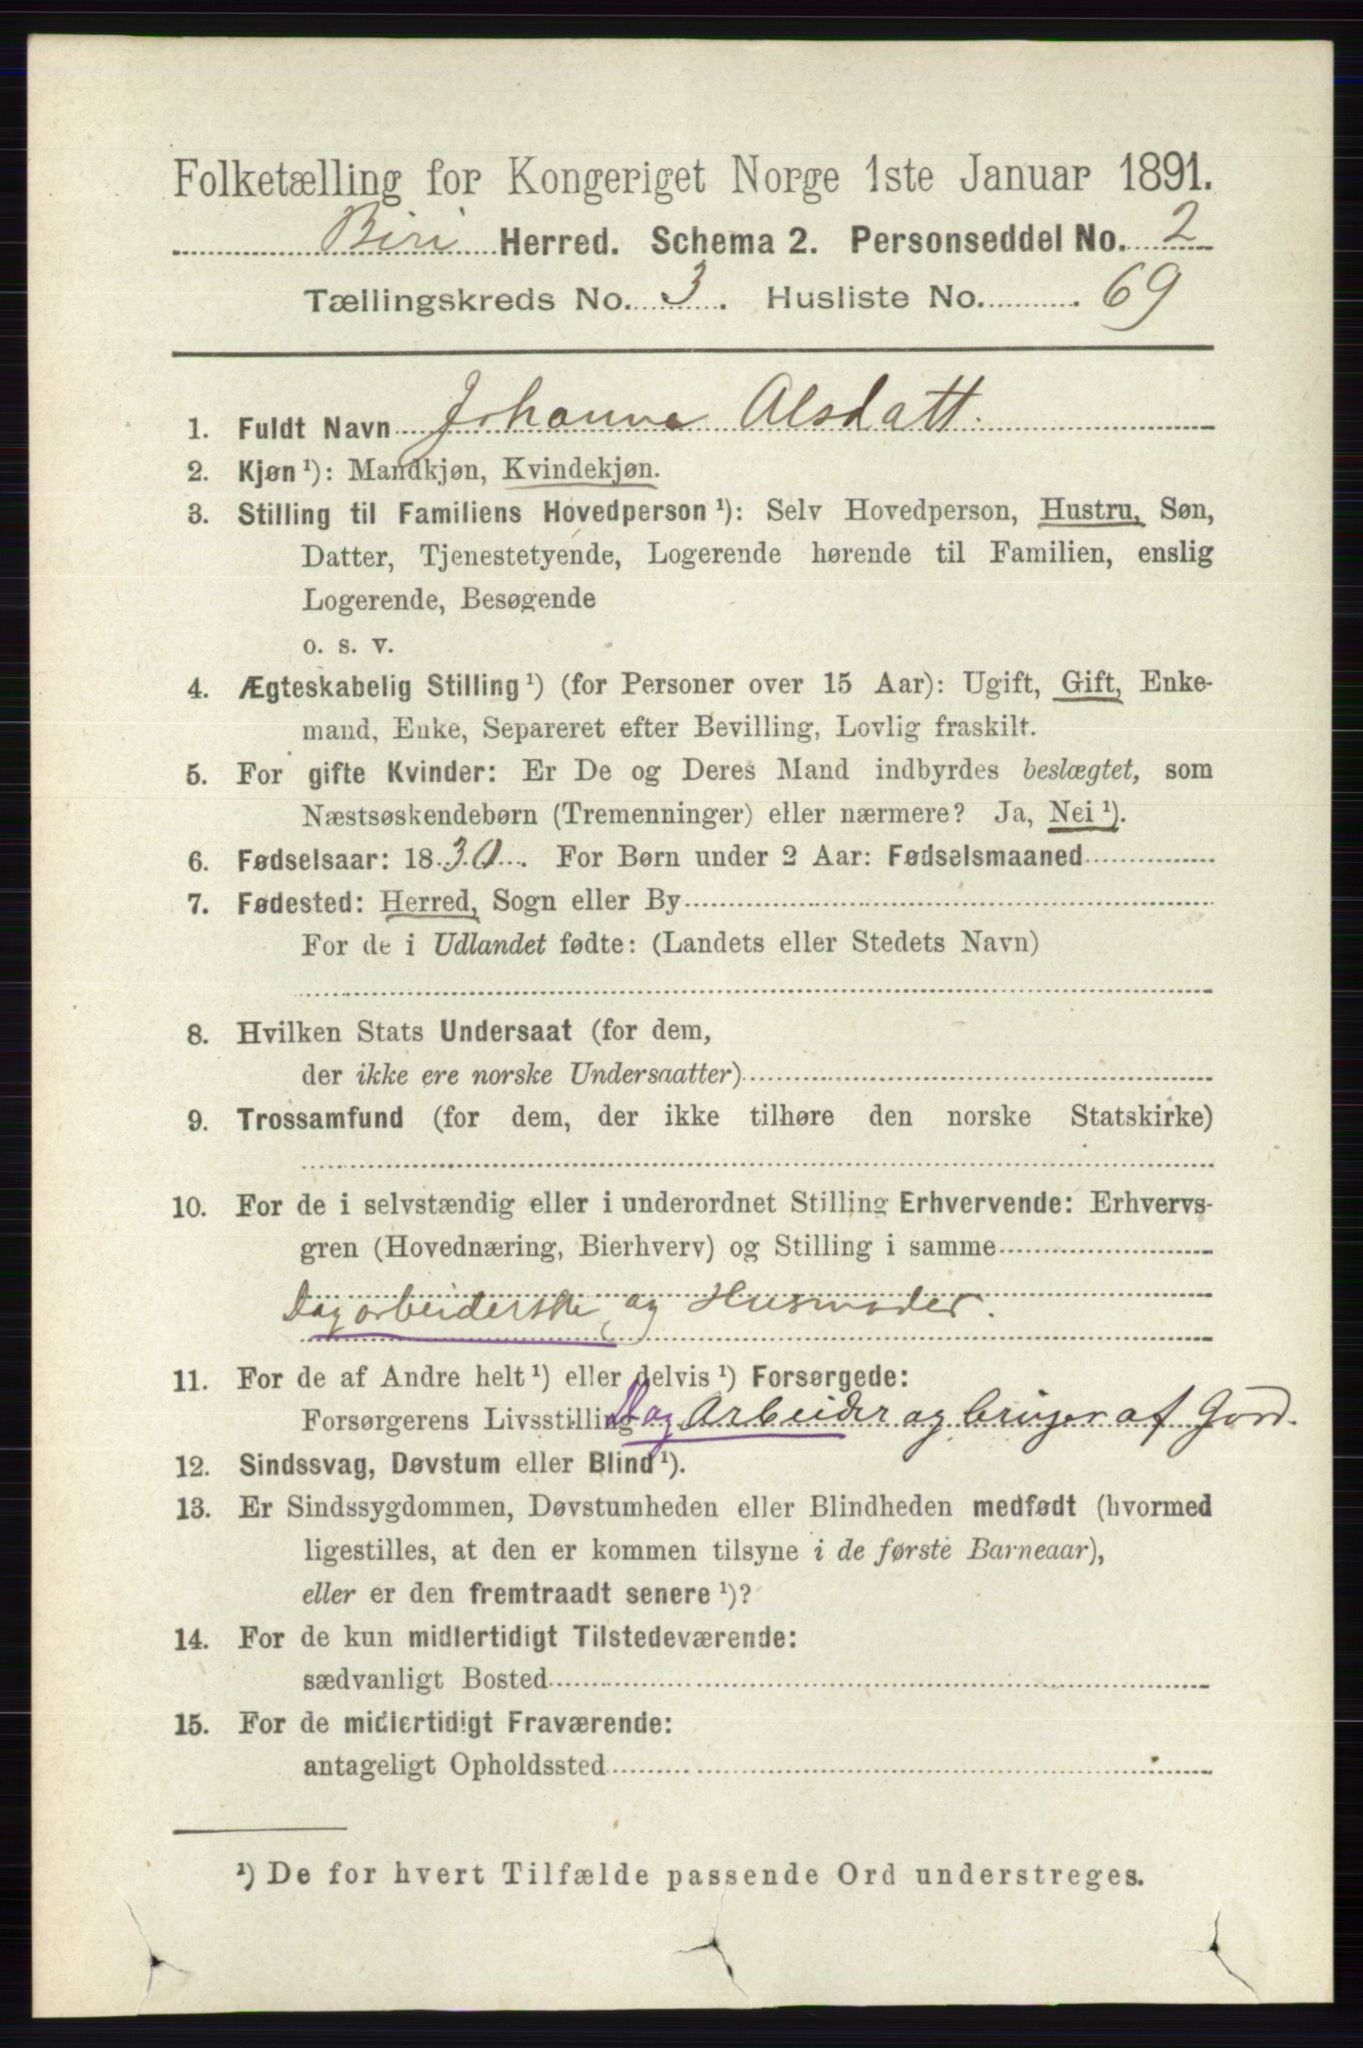 Folketælling for Kongeriget Norge 1ste Januar 1891.
Biri Herred. Schema 2. Personseddel No. 2
Tællingskreds No. 3. Husliste No. 69
1. Fuldt Navn Johanne Alsdatt.
2. Kjøn ¹): Mandkjøn, Kvindekjøn.
3. Stilling til Familiens Hovedperson ¹): Selv Hovedperson, Hustru, Søn,
Datter, Tjenestetyende, Logerende hørende til Familien, enslig
Logerende, Besøgende
o. s. v.
4. Ægteskabelig Stilling ¹) (for Personer over 15 Aar): Ugift, Gift, Enke-
mand, Enke, Separeret efter Bevilling, Lovlig fraskilt.
5. For gifte Kvinder: Er De og Deres Mand indbyrdes beslægtet, som
Næstsøskendebørn (Tremenninger) eller nærmere? Ja, Nei ¹).
6. Fødselsaar: 1830. For Børn under 2 Aar: Fødselsmaaned
7. Fødested: Herred, Sogn eller By
For de i Udlandet fødte: (Landets eller Stedets Navn)
8. Hvilken Stats Undersaat (for dem,
der ikke ere norske Undersaatter)
9. Trossamfund (for dem, der ikke tilhøre den norske Statskirke)
10. For de i selvstændig eller i underordnet Stilling Erhvervende: Erhvervs-
gren (Hovednæring, Bierhverv) og Stilling i samme
Dagarbeiderske og Husmoder.
11. For de af Andre helt ¹) eller delvis ¹) Forsørgede:
Forsørgerens Livsstilling Dag Arbeider og bruger af Jord.
12. Sindssvag, Døvstum eller Blind ¹).
13. Er Sindssygdommen, Døvstumheden eller Blindheden medfødt (hvormed
ligestilles, at den er kommen tilsyne i de første Barneaar),
eller er den fremtraadt senere ¹)?
14. For de kun midlertidigt Tilstedeværende:
sædvanligt Bosted
15. For de midlertidigt Fraværende:
antageligt Opholdssted
¹) De for hvert Tilfælde passende Ord understreges.